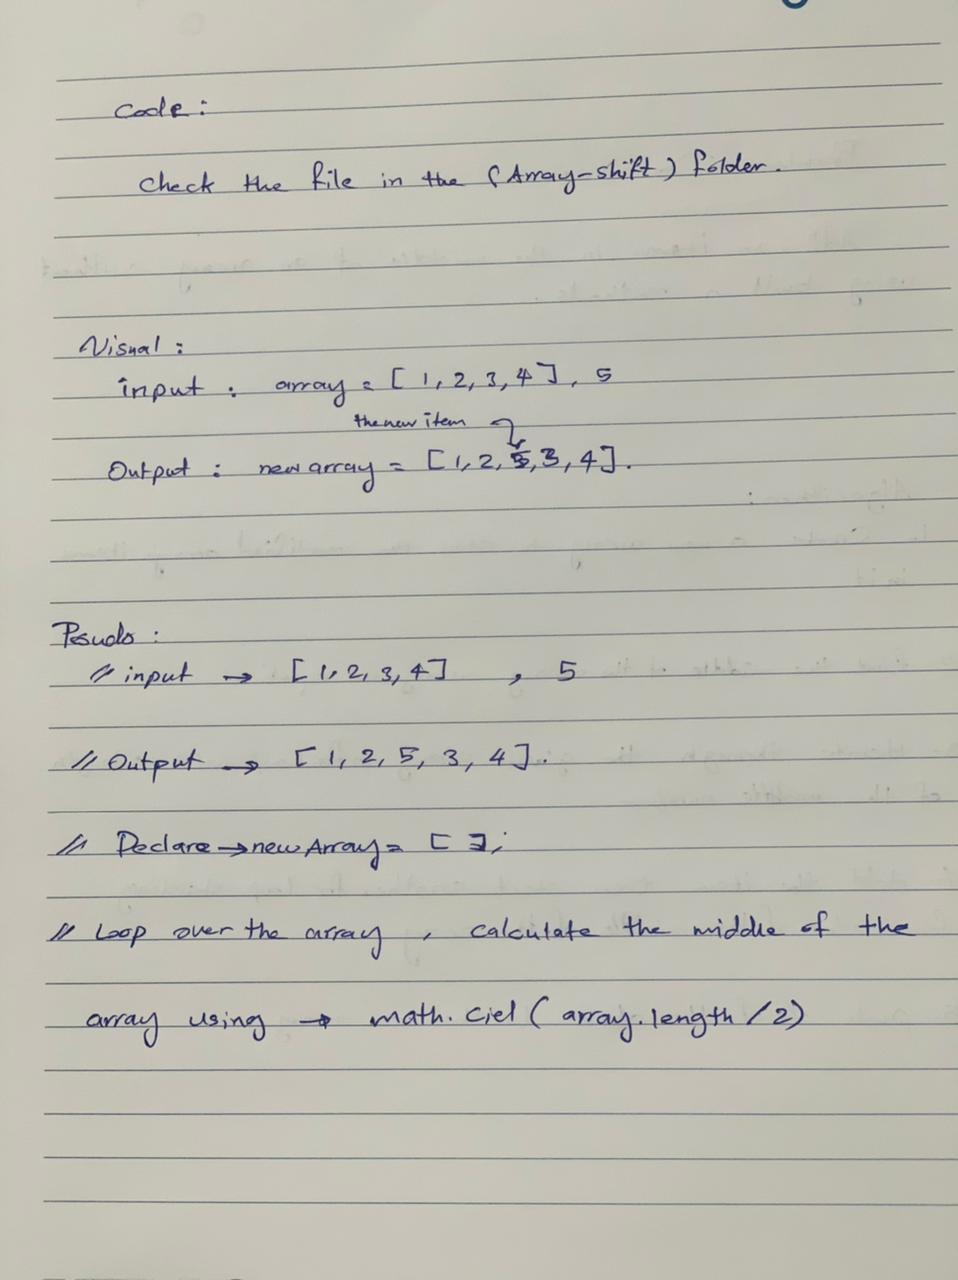 Code:
Check the file in the (Array-shift) folder.
Visual:
input: array = [1, 2, 3, 4], 5
the new item
Output: new array = [1, 2, 5, 3, 4].
Psudo:
// input → [1, 2, 3, 4] , 5
// Output → [1, 2, 5, 3, 4].
// Declare → new Array = [ ];
// Loop over the array, calculate the middle of the
array using → math.ciel (array.length /2)